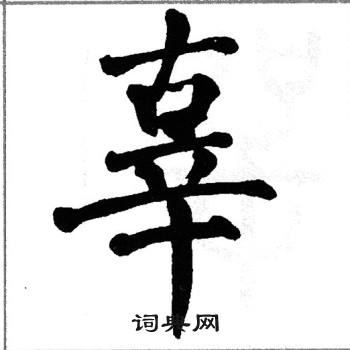 辜
词典网